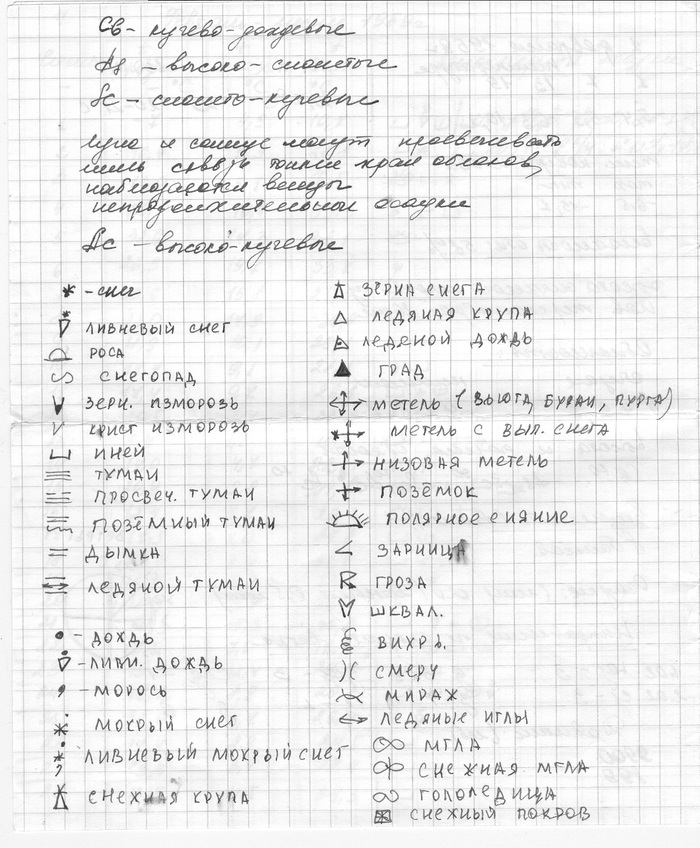 Св - кучево-дождевые
As - высоко-слоистые
Sc - слоисто-кучевые
Луна и солнце могут просвечивать
лишь сквозь тонкие края облаков,
наблюдаются венцы
непродолжительные осадки
Ac - высоко-кучевые
- снег
ливневый снег
роса
снегопад
зерн. изморозь
крист изморозь
иней
туман
просвеч. туман
позёмный туман
дымка
ледяной туман
- дождь
- ливн. дождь
- морось
мокрый снег
ливневый мокрый снег
снежная крупа
зёрна снега
ледяная крупа
ледяной дождь
град
метель (вьюга, буран, пурга)
метель с вып. снега
низовая метель
позёмок
полярное сияние
зарница
гроза
шквал.
вихрь.
смерч
мираж
ледяные иглы
мгла
снежная мгла
гололедица
снежный покров